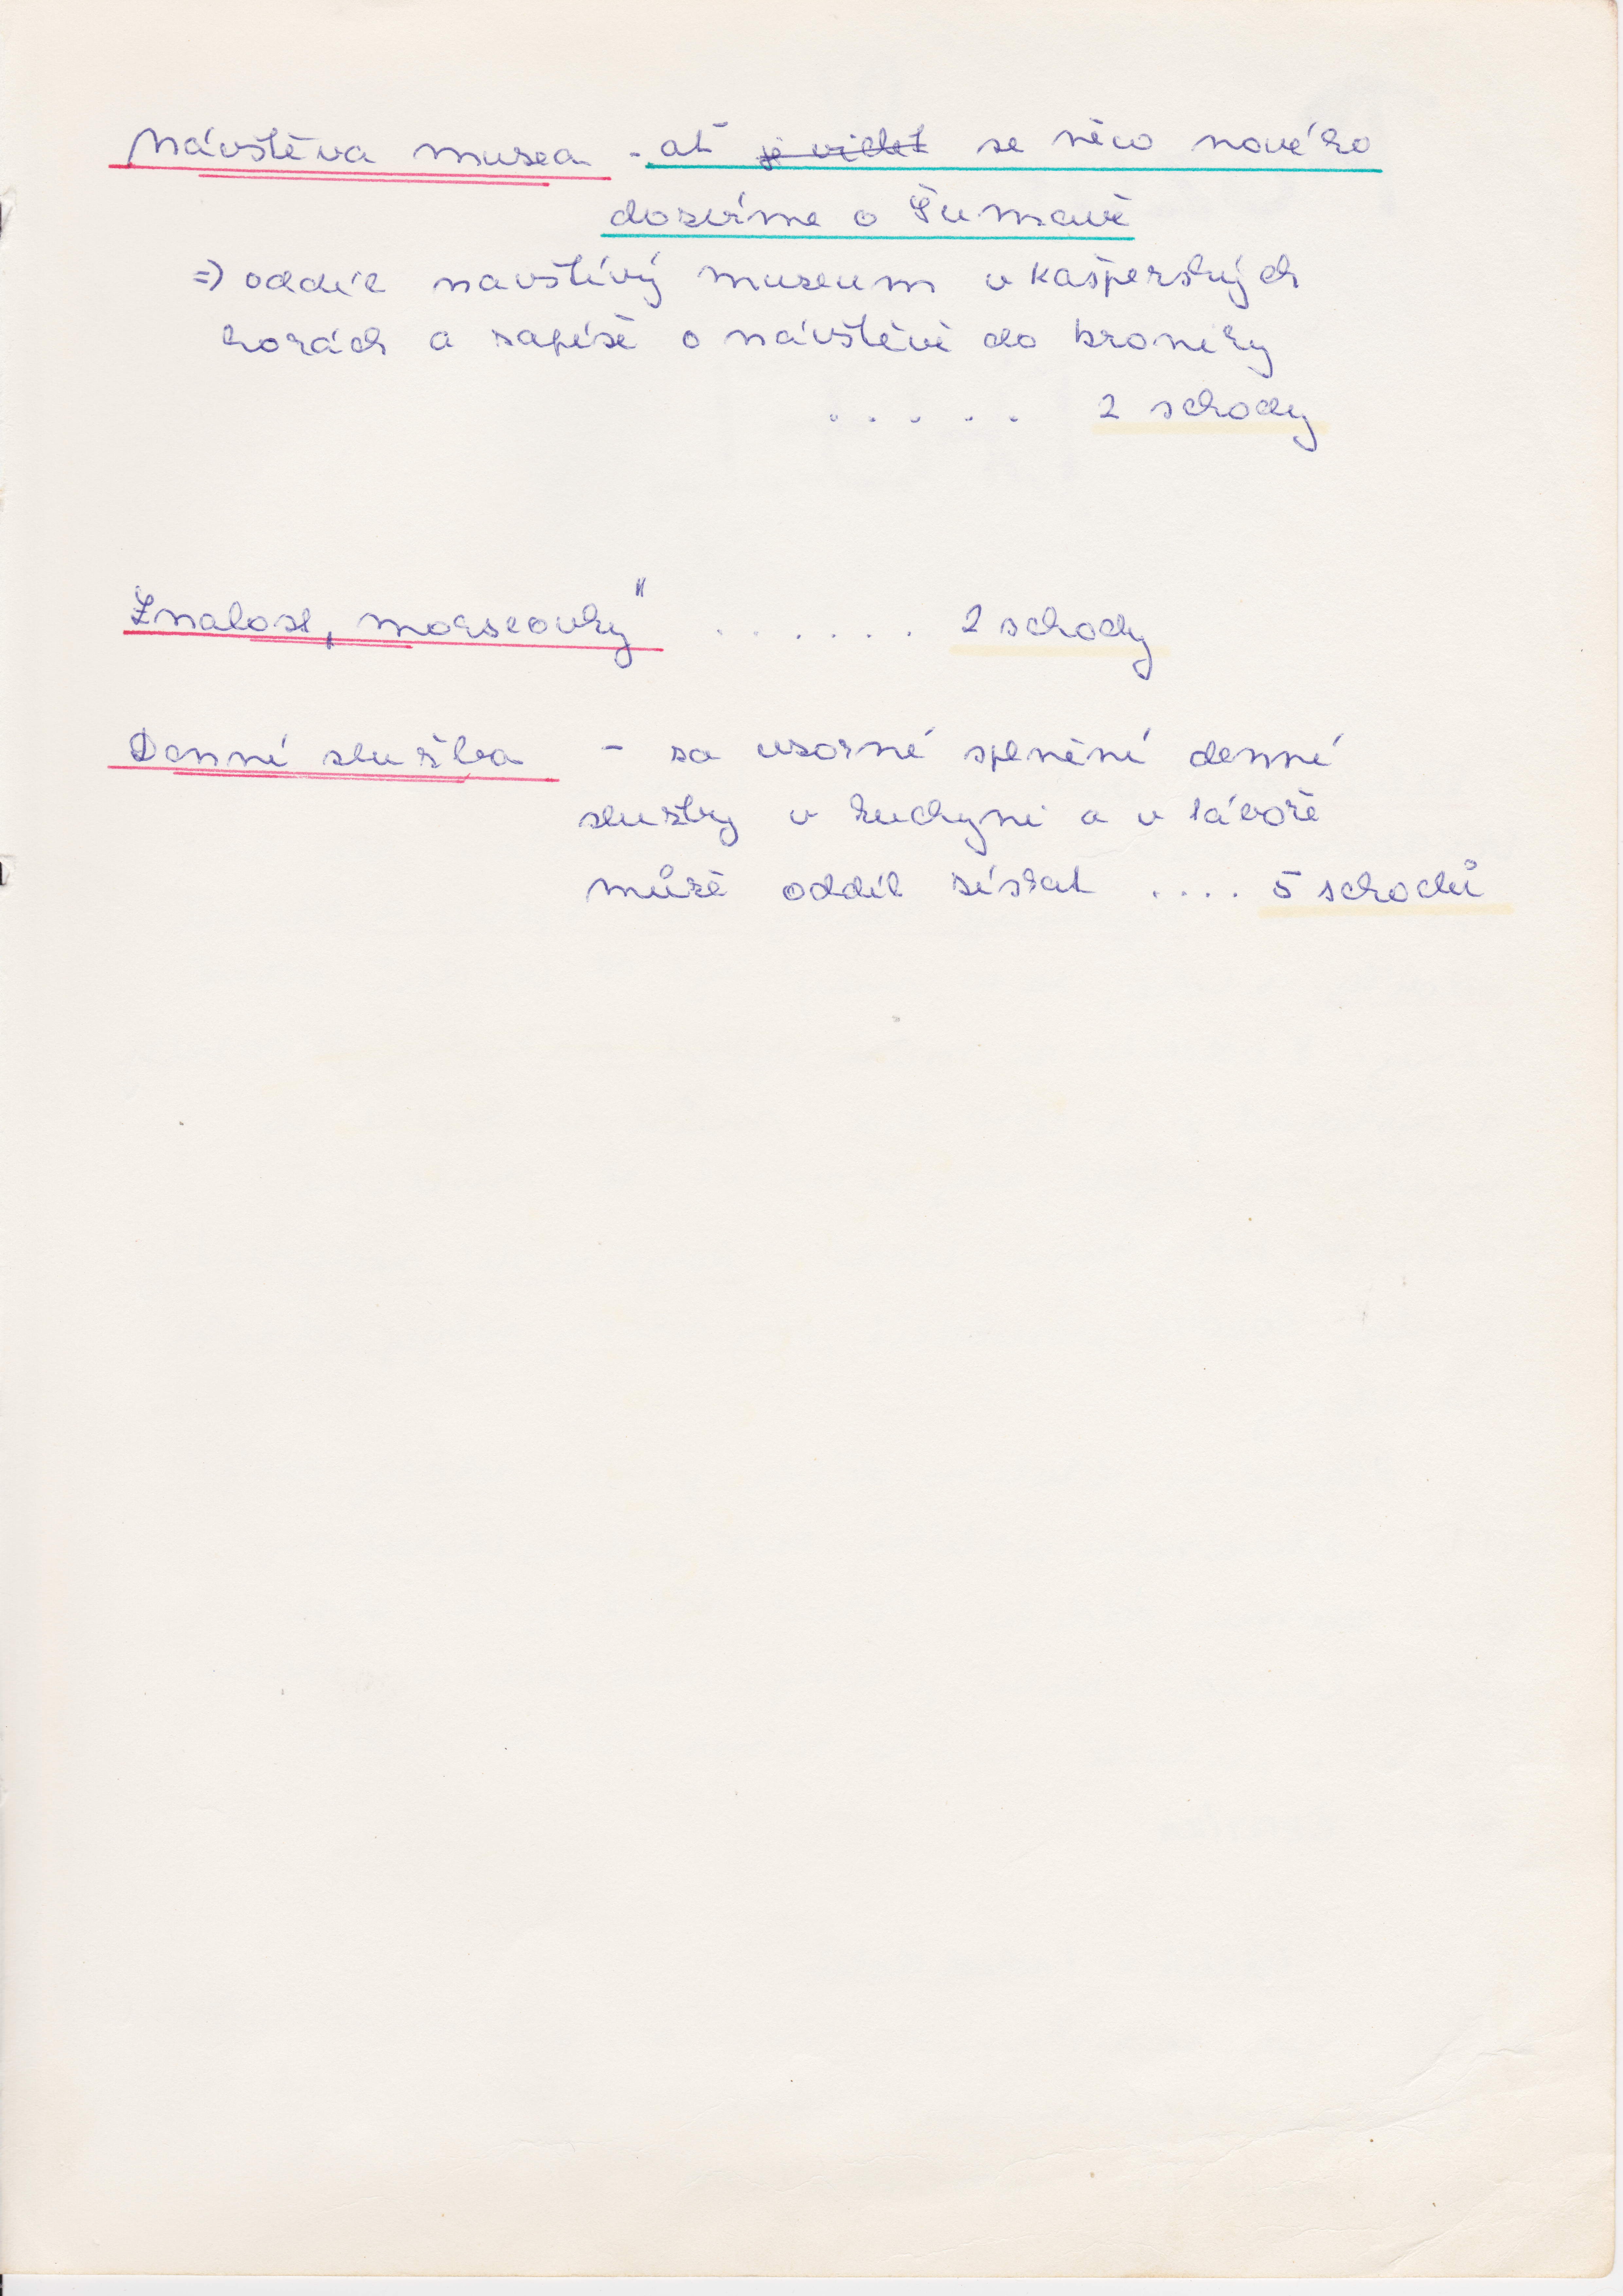 Návštěva musea - ať je vidět se něco nového
dozvíme o Šumavě
=> oddíl navštívý museum v Kašperských
horách a zapíše o návštěvě do kroniky
. . . . . 2 schody
Znalost „morseovky"  . . . . . . 2 schody
Denní služba - za vzorné splnění denní
služby v kuchyni a v táboře
může oddíl získat .... 5 schodů